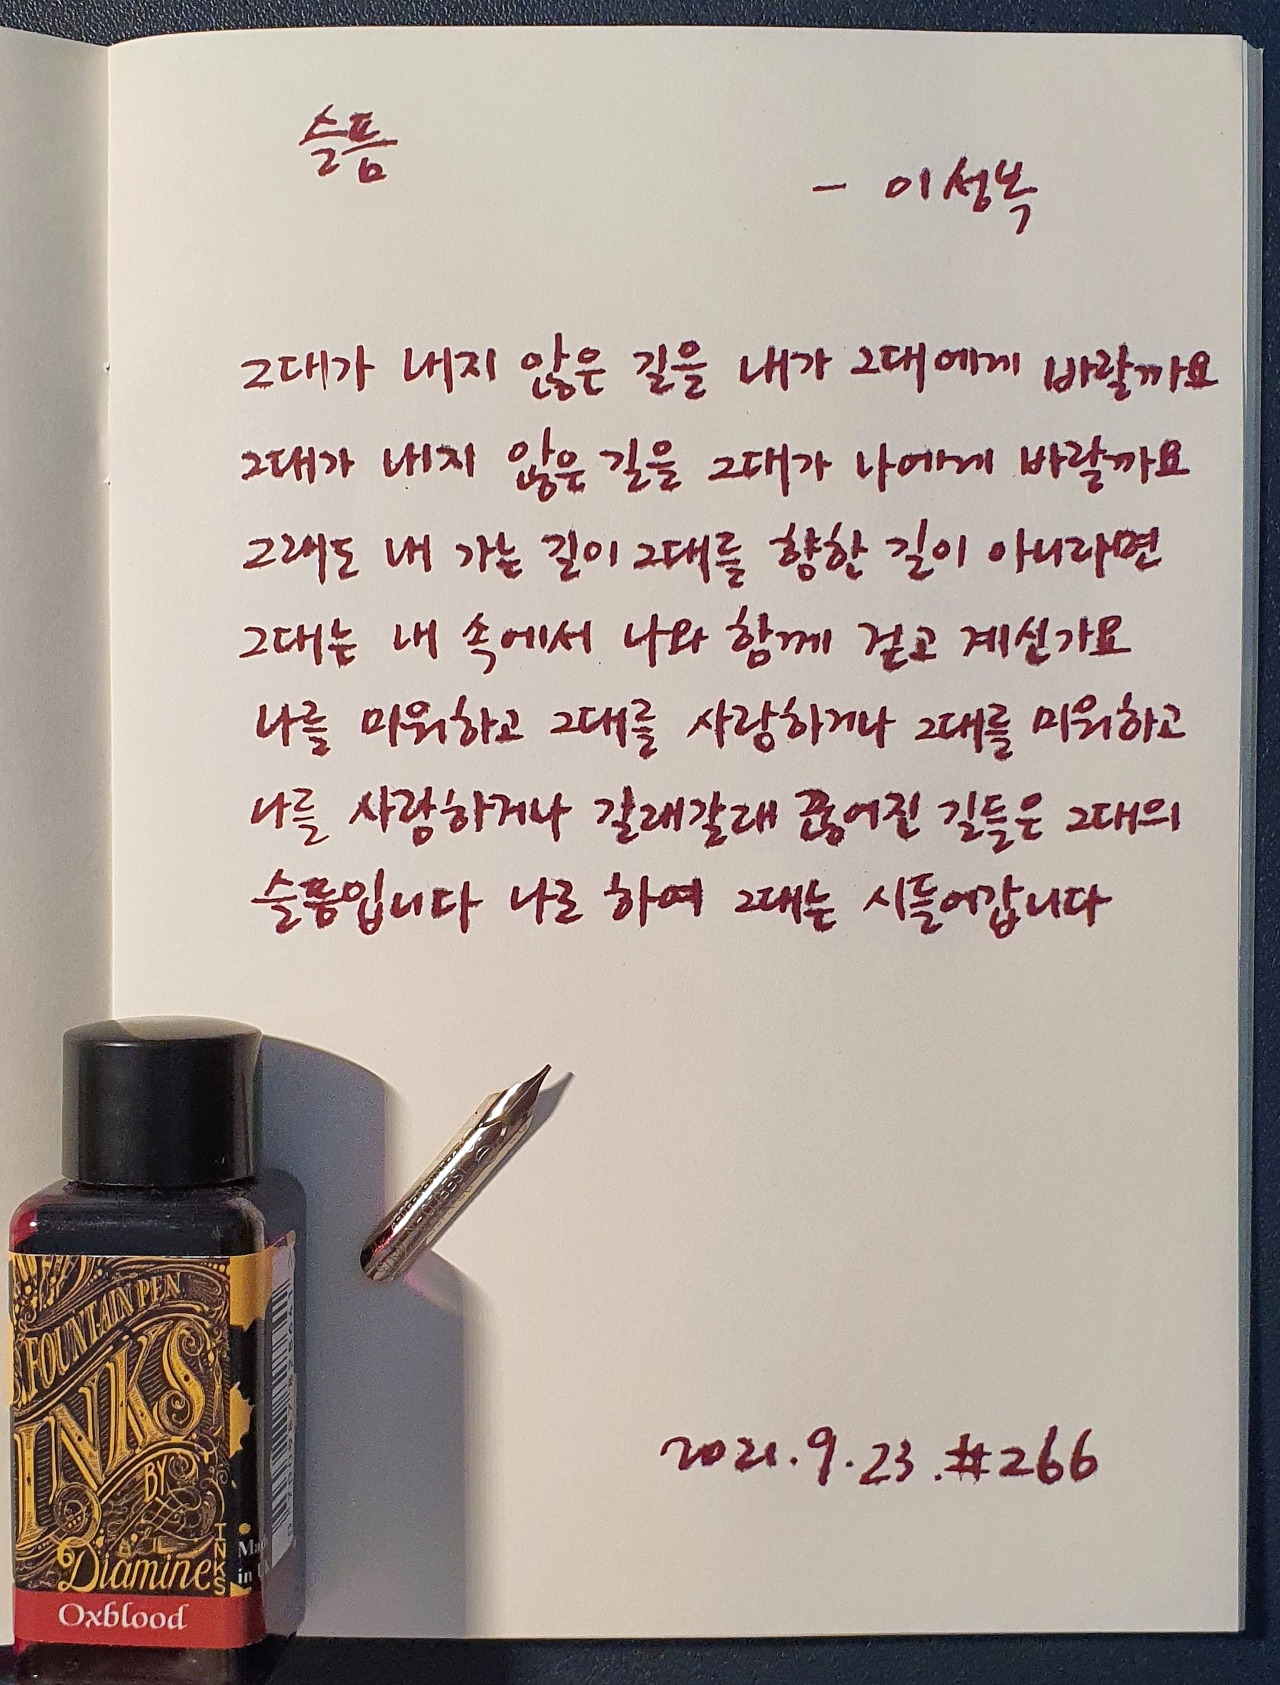 슬픔
- 이성복
그대가 내지 않은 길을 내가 그대에게 바랄까요
그대가 내지 않은 길을 그대가 나에게 바랄까요
그래도 내 가는 길이 그대를 향한 길이 아니라면
그대는 내 속에서 나와 함께 걷고 계신가요
나를 미워하고 그대를 사랑하거나 그대를 미워하고
나를 사랑하거나 갈래갈래 끊어진 길들은 그대의
슬픔입니다 나로 하여 그대는 시들어갑니다
FOUNTAIN PEN
INKS
BY
Diamine
INKS
in
Oxblood
2021.9.23.#266